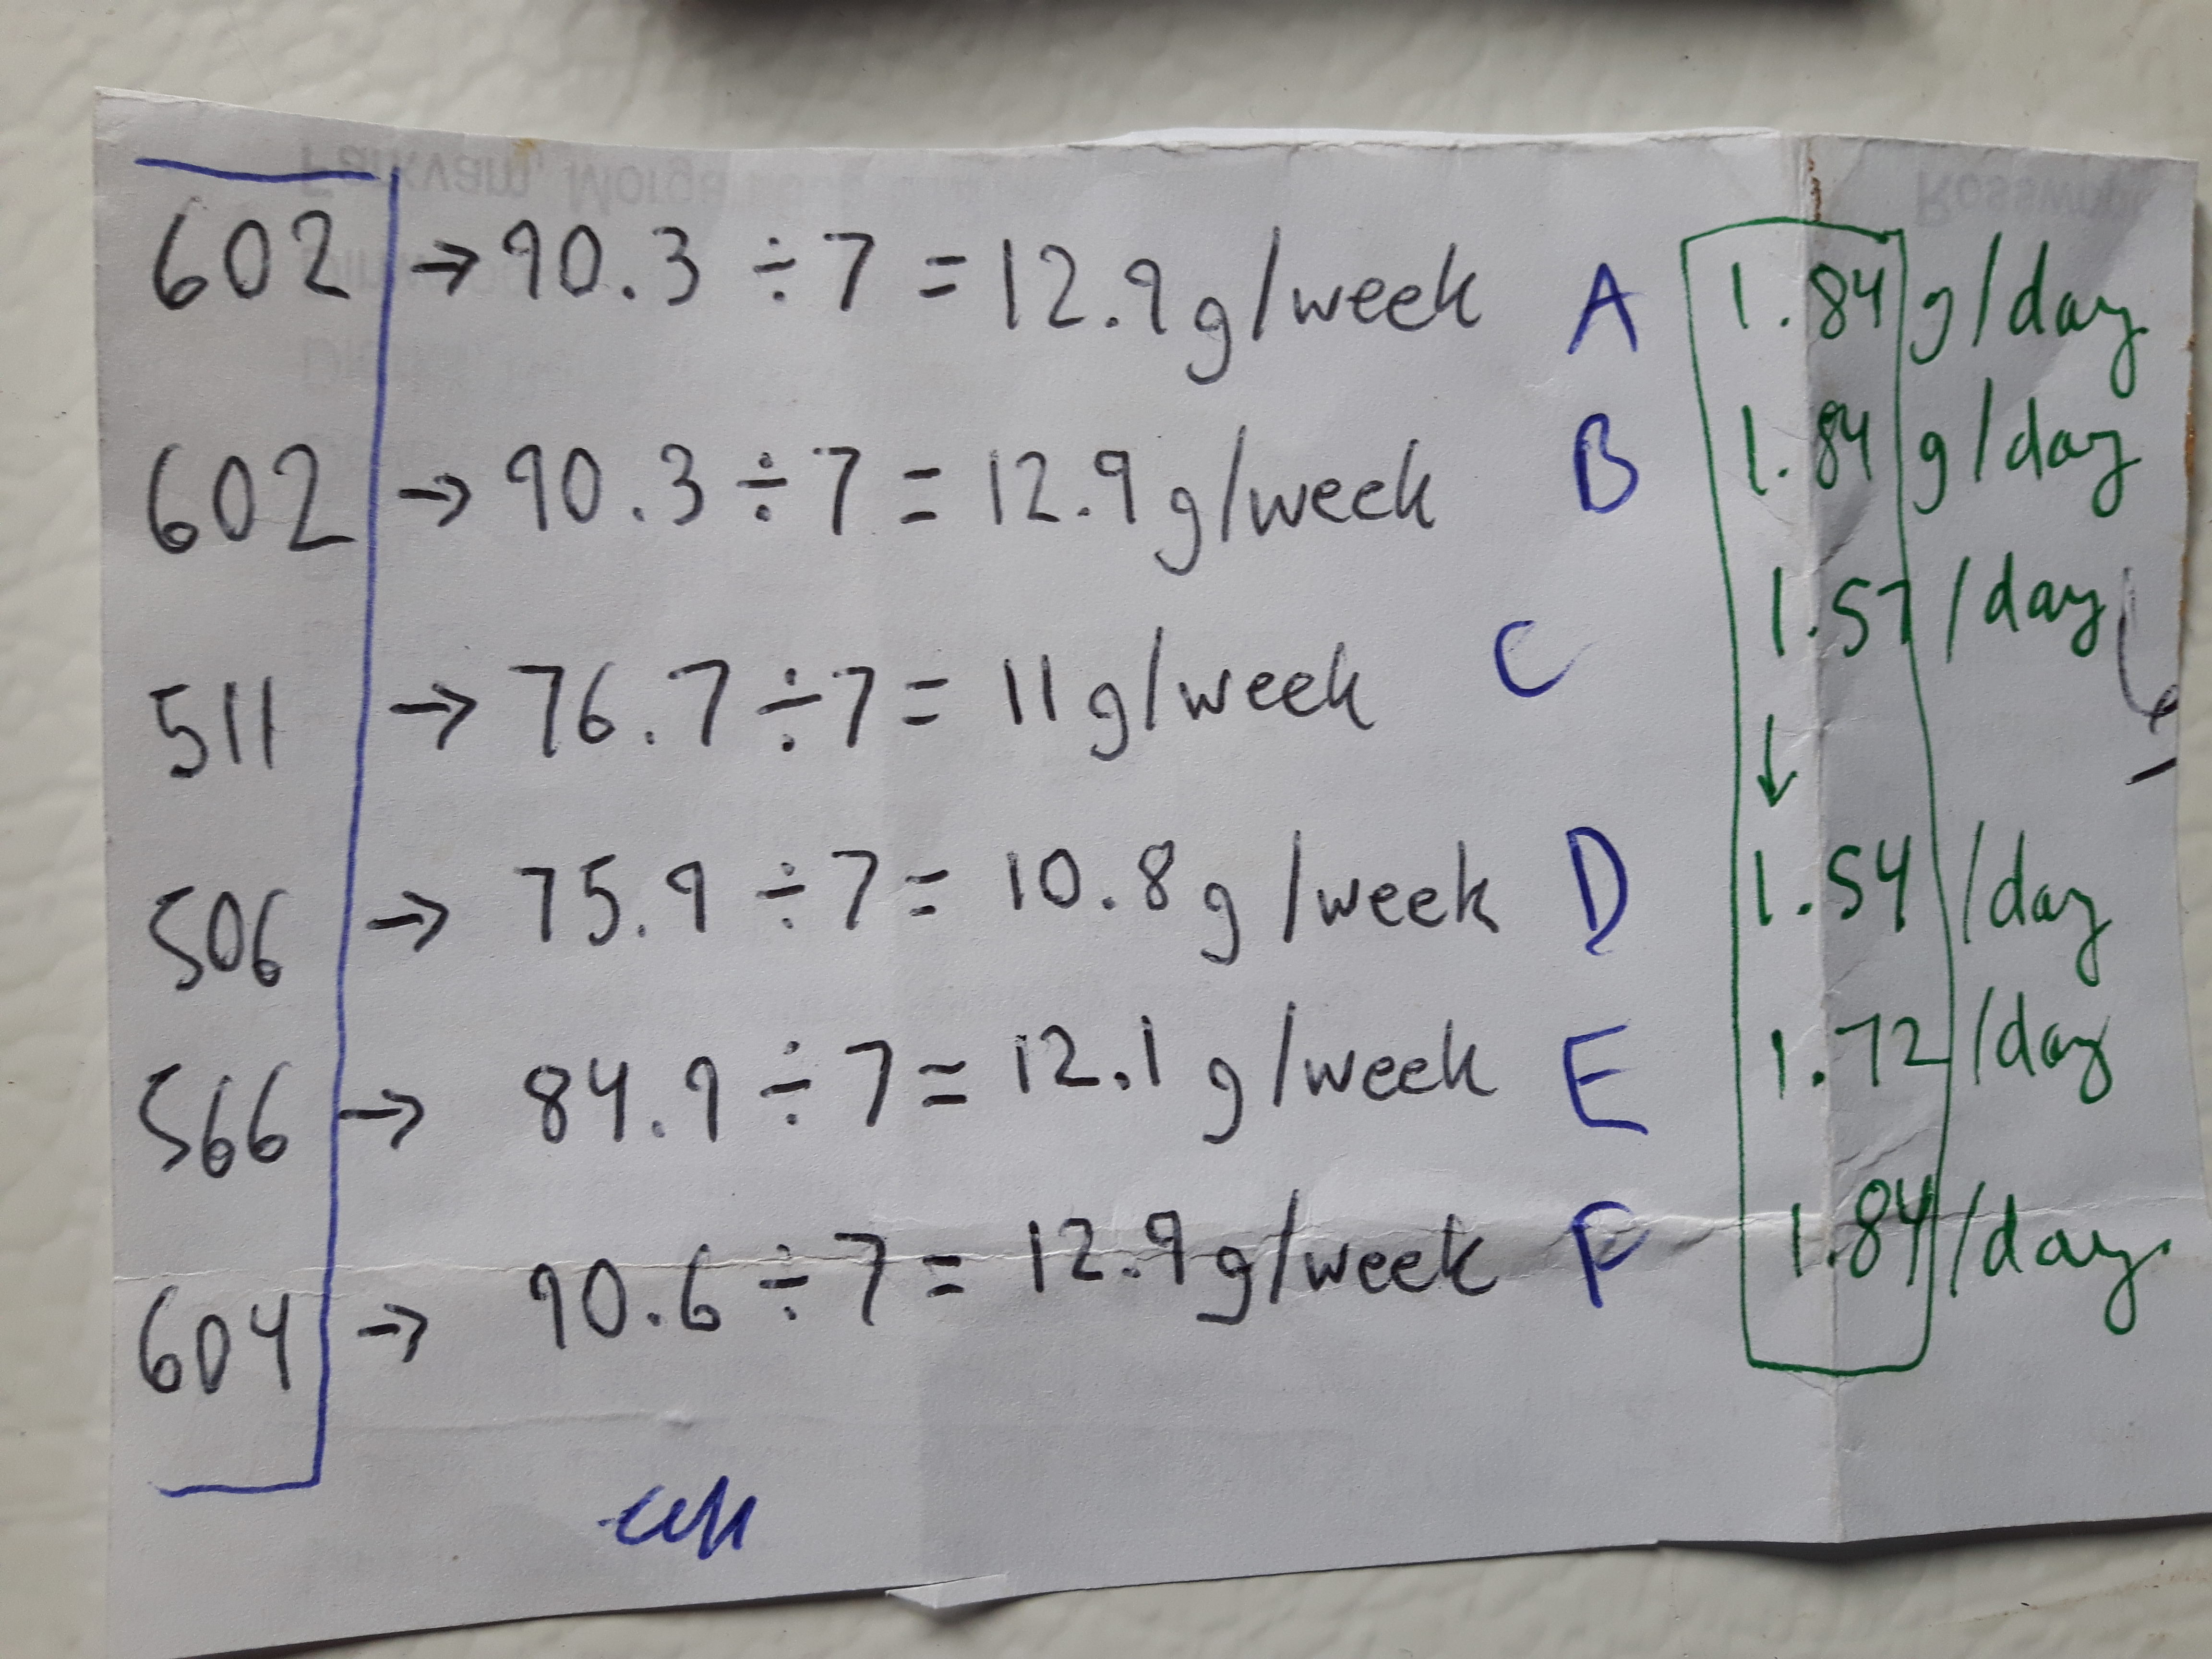 602 → 90.3 ÷ 7 = 12.9 g/week A 1.84 g/day
602 → 90.3 ÷ 7 = 12.9 g/week B 1.84 g/day
511 → 76.7 ÷ 7 = 11 g/week C 1.57 /day
↓
506 → 75.9 ÷ 7 = 10.8 g/week D 1.54 /day
566 → 84.9 ÷ 7 = 12.1 g/week E 1.72 /day
604 → 90.6 ÷ 7 = 12.9 g/week F 1.84 /day